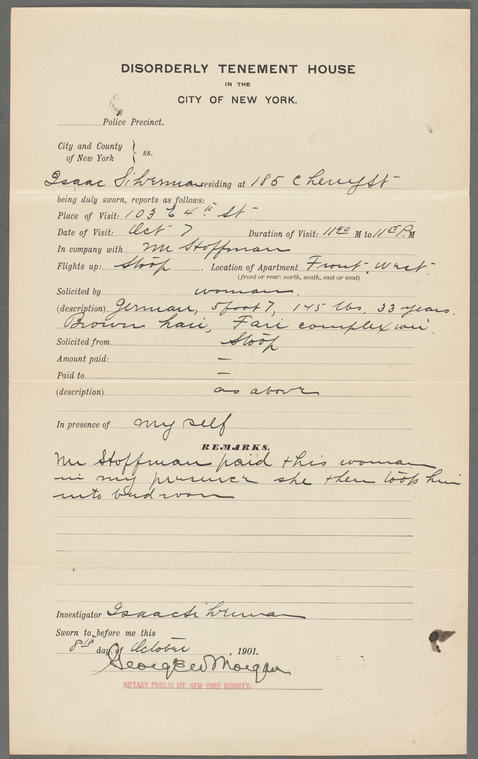 DISORDERLY TENEMENT HOUSE
IN THE
CITY OF NEW YORK.
Police Precinct.
City and County
of New York } ss.
Isaac Silverman residing at 185 Cherry St
being duly sworn, reports as follows:
Place of Visit: 103 E 4th St
Date of Visit: Oct 7 Duration of Visit: 1120 M to 11 P. M
In company with Mr Stoffman
Flights up: Stoop. Location of Apartment Front. West.
(front or rear: north, south, east or west)
Solicited by woman.
(description) German, 5 foot 7, 145 lbs, 33 years.
Brown hair, Fair complexion.
Solicited from Stoop
Amount paid: –
Paid to –
(description) as above
In presence of my self
REMARKS.
Mr Stoffman paid this woman
in my presence she then took him
into bed room
Investigator Isaac Silverman
Sworn to before me this
8th day of October, 1901.
Morgan
NOTARY PUBLIC NEW YORK COUNTY.